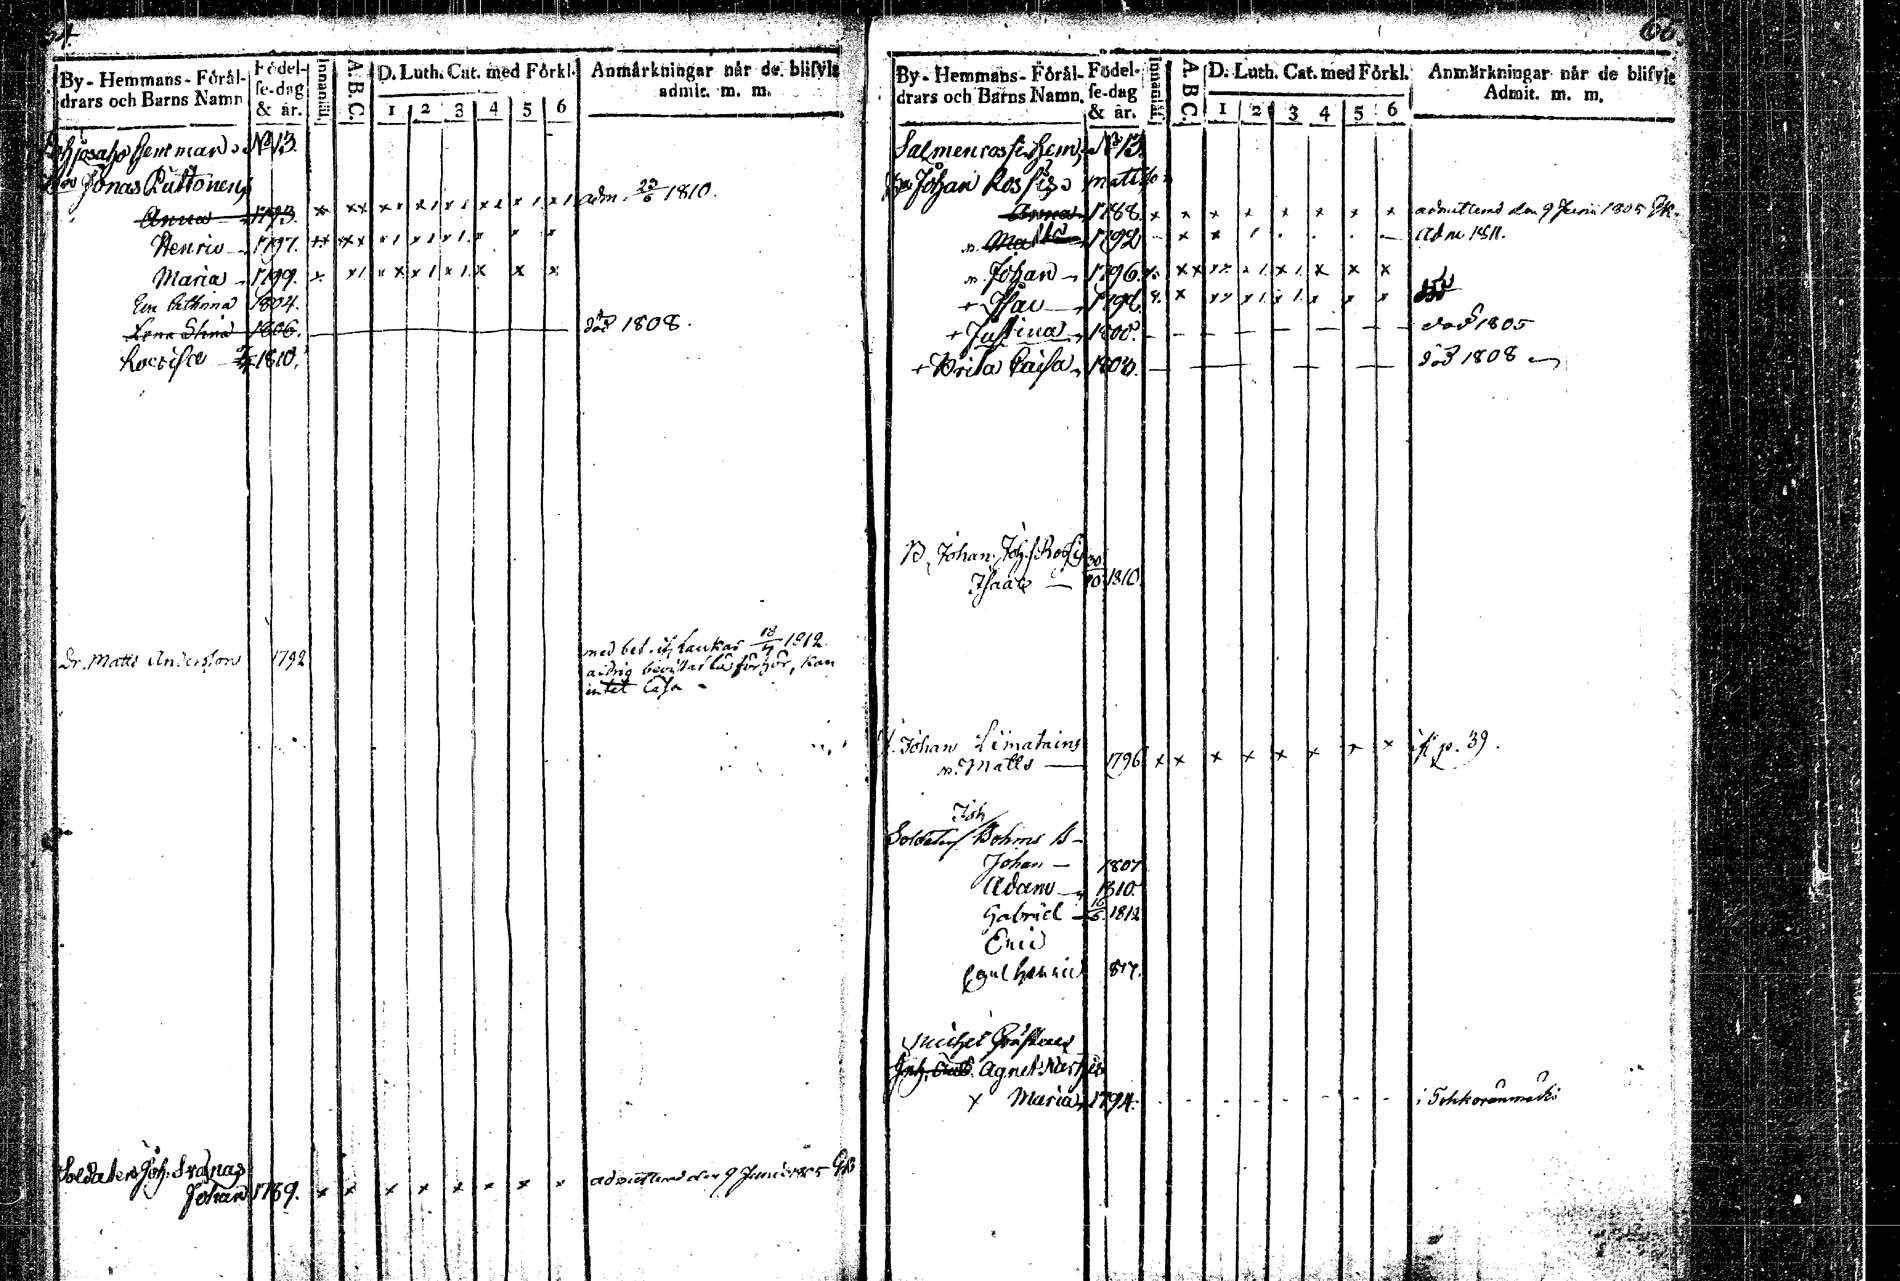 By-Hemmans-Förål-
drars och Barns Namn
Födel-
se-dag
& år.
Innantill.
A. B. C.
D. Luth. Cat. med Förkl.
1 2 3 4 5 6
Anmärkningar når de blifvit
admit. m. m.
hemman No 13.
Jonas Ruttonens
Anna 1793. adm. 23/6 1810.
Henric 1797.
Maria 1799.
Cathrina 1804.
Lena Stina 1806. död 1808.
Lovisa 1810.
Dr. Matts Andersson 1792
med bet. if. Laukas 18/7 1812.
aldrig bevistat läsförhör, kan
intet läsa
Soldaten Joh.
Johan 1789. admitterad den 9 Junii 1805
66.
By-Hemmans-Förål-
drars och Barns Namn.
Födel-
se-dag
& år.
Innantill.
A. B. C.
D. Luth. Cat. med Förkl.
1 2 3 4 5 6
Anmärkningar når de blifvit
Admit. m. m.
hem. No 13.
Johan Rossis Mattsson
Anna 1788. admitterad den 9 Junii 1805
Matts 1792 adm 1811.
Johan 1796.
Isac 1798.
+ Justina 1800. död 1805
+ Brita Caisa 1803. död 1808
B. Johan Joh.
Isaac 30/10 1810.
Johan Limatains
Matts 1796 p. 39.
Joh
Soldaten Bohms B
Johan 1807
Adam 1810
Gabriel 16/5 1812
Eric
Carl Henric 817.
Michel
Agnet.
x Maria 1794.